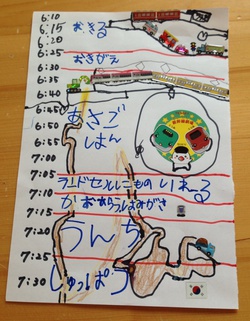 6:10
6:15 おきる
6:20
6:25 おきがえ
6:30
6:35
6:40
6:45
6:50 あさご
6:55 はん
7:00
7:05 ラードセとしこもの いれーる
7:10 かおあらうはみがき
7:15
7:20 うんち
7:25
7:30 しゅっぱつ